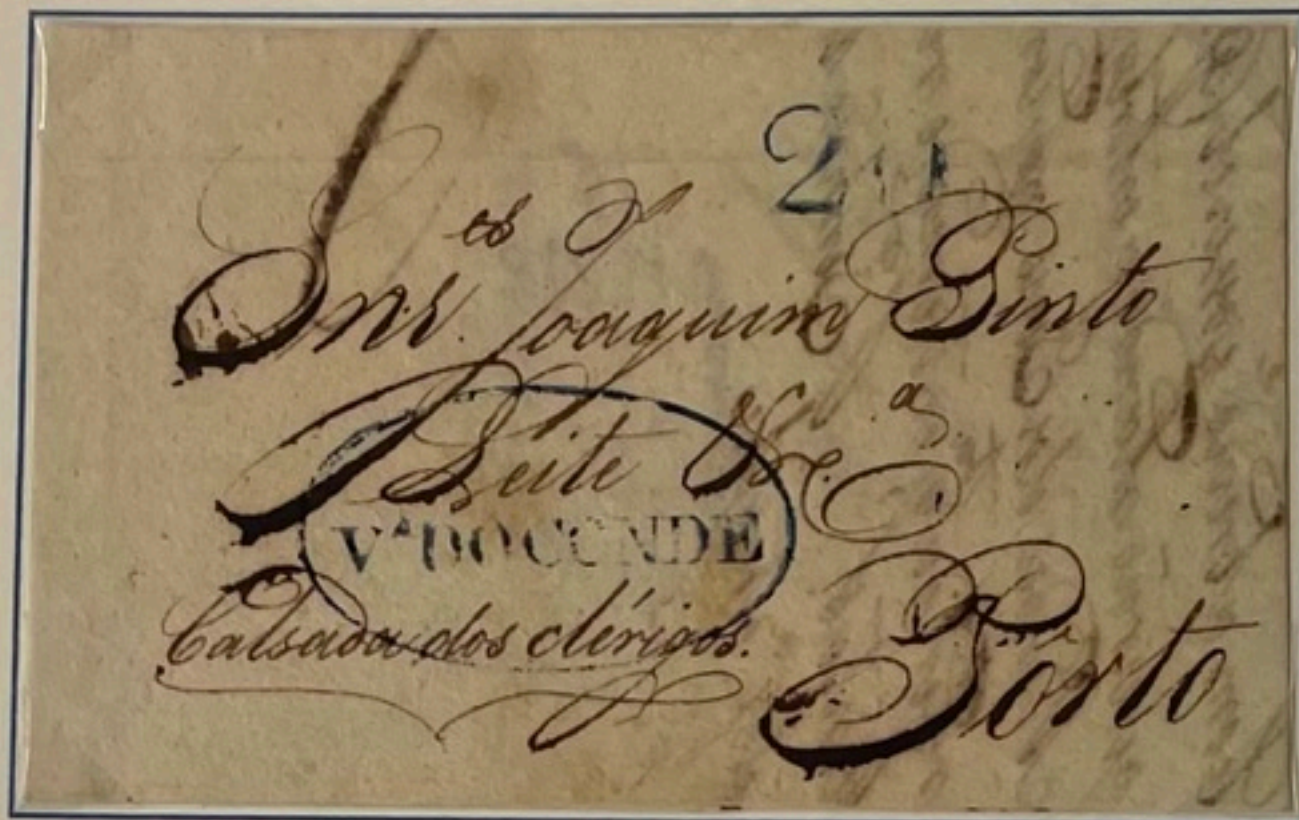 Snres Joaquim Pinto
Leite & Ca.
Vª DO CONDE
Calsada dos clérigos.
Porto